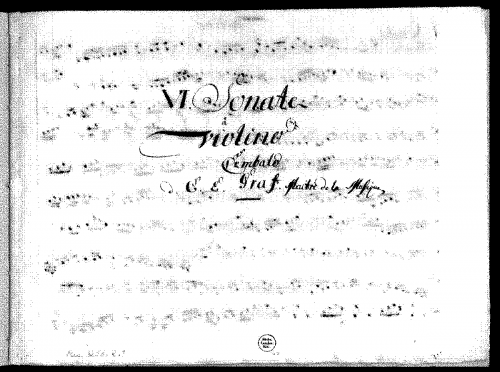 VI Sonate
à
Violino e
Cembalo
d. C. E. Graf. Maitre de la Musique
Mus.